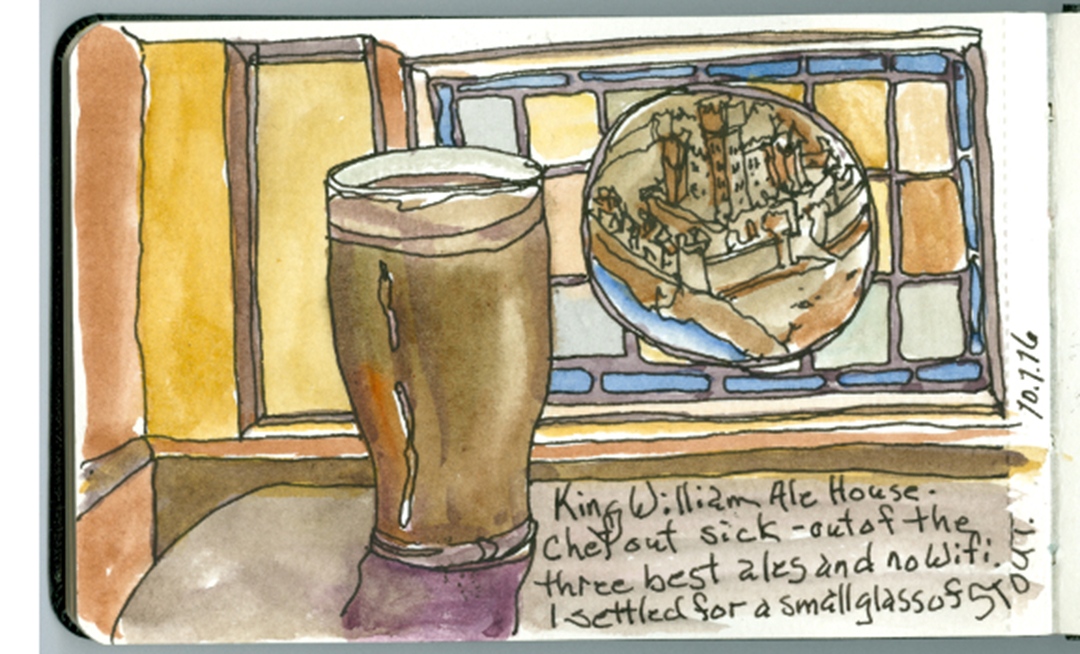 King William Ale House.
Chef out sick - out of the
three best ales and no Wifi.
I settled for a small glass of Stout.
10.7.16